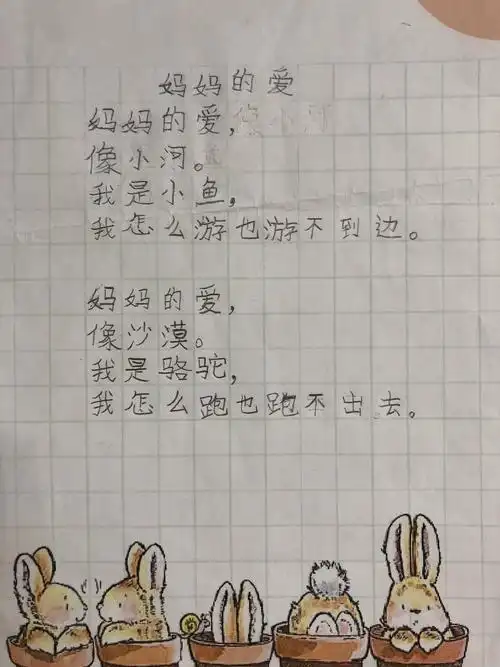 妈妈的爱
妈妈的爱，
像小河。
我是小鱼，
我怎么游也游不到边。
妈妈的爱，
像沙漠。
我是骆驼，
我怎么跑也跑不出去。